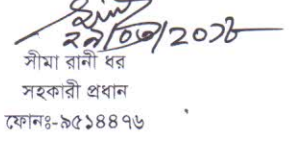 ২৯/০৩/2০১৮
সীমা রানী ধর
সহকারী প্রধান
ফোনঃ-৯৫১৪৪৭৬